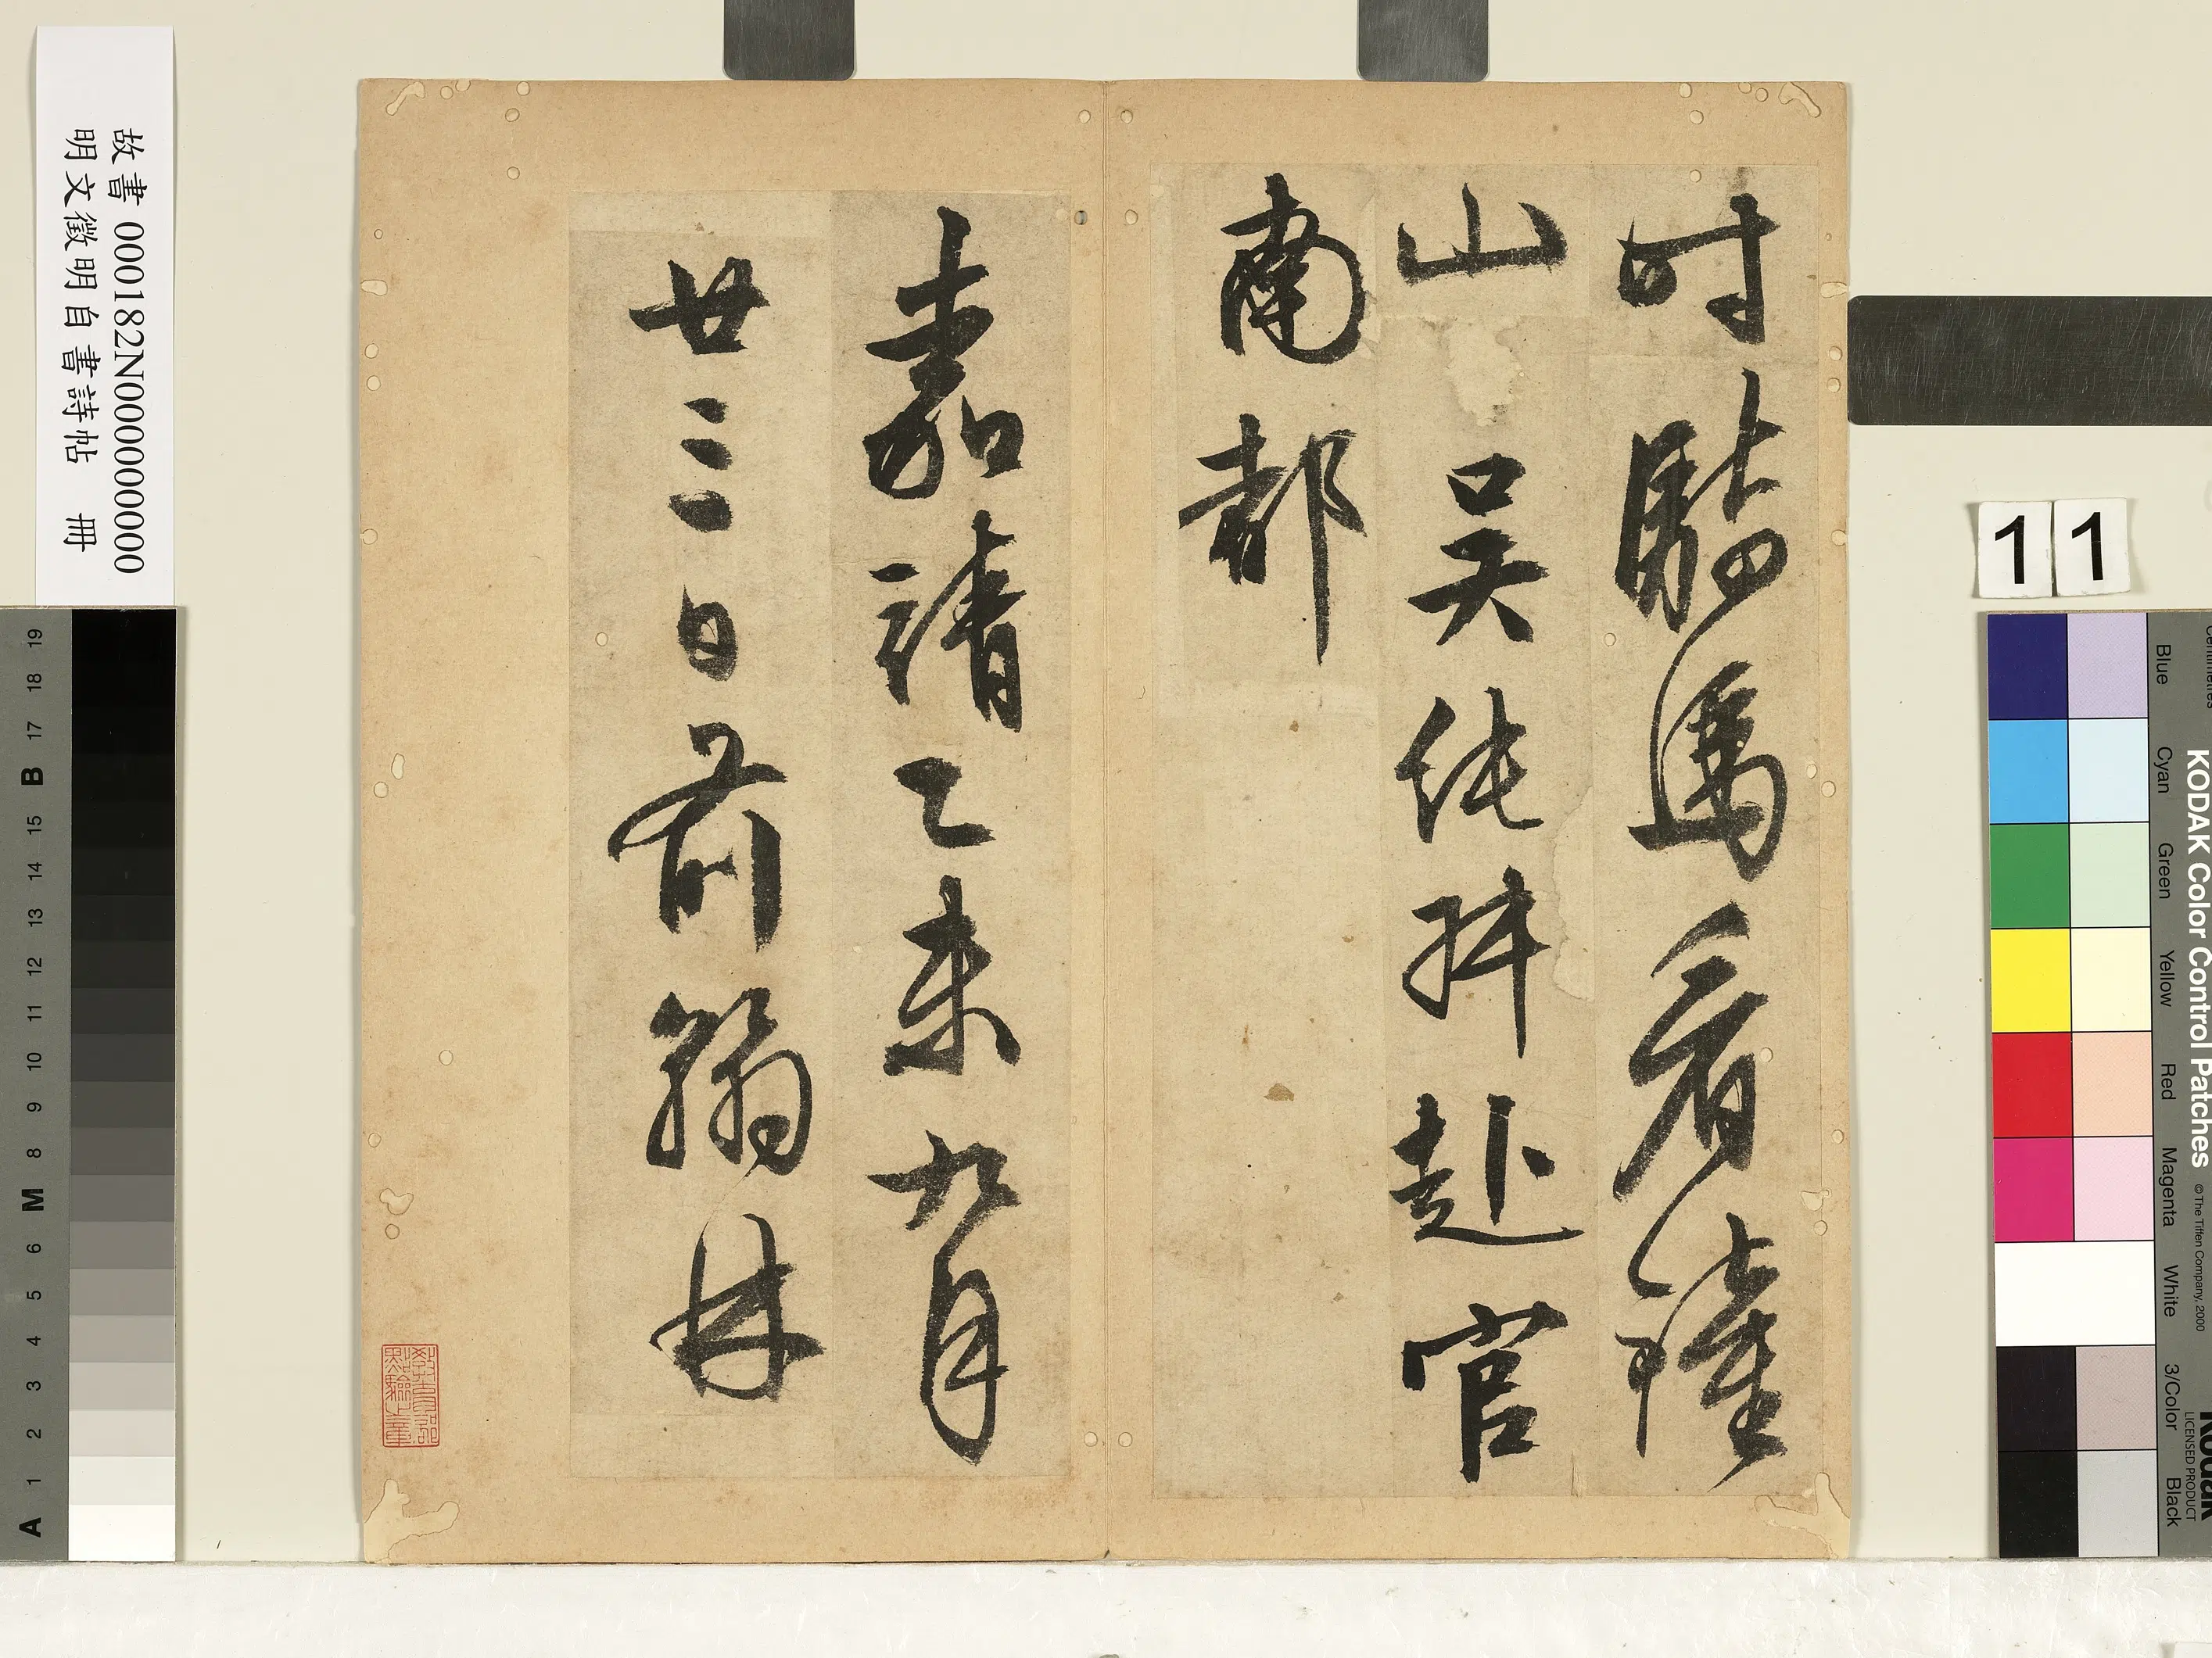 时騎馬看鍾
山 吳純叔赴官
南都
嘉靖乙未九月
廿三日前翰林
教育部點驗之章
故書 000182N000000000
明文徵明自書詩帖 冊
11
KODAK Color Control Patches
© The Tiffen Company, 2000
Kodak
LICENSED PRODUCT
Centimetres
Blue
Cyan
Green
Yellow
Red
Magenta
White
3/Color
Black
A 1 2 3 4 5 6 M 8 9 10 11 12 13 14 15 B 17 18 19